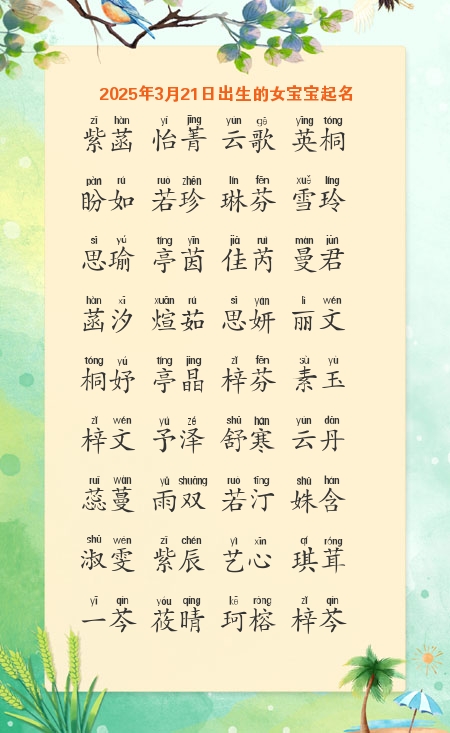 2025年3月21日出生的女宝宝起名
zǐ hàn yí jīng yún gē yīng tóng
紫菡 怡菁 云歌 英桐
pàn rú ruò zhēn lín fēn xuě líng
盼如 若珍 琳芬 雪玲
sī yú tíng yīn jiā ruì màn jūn
思瑜 亭茵 佳芮 曼君
hàn xī xuān rú sī yán lì wén
菡汐 煊茹 思妍 丽文
tóng yú tíng jīng zǐ fēn sù yù
桐妤 亭晶 梓芬 素玉
zǐ wén yú zé shū hán yún dān
梓文 予泽 舒寒 云丹
ruǐ wàn yǔ shuāng ruò tīng shū hán
蕊蔓 雨双 若汀 姝含
shū wén zǐ chén yì xīn qí róng
淑雯 紫辰 艺心 琪茸
yī qín yóu qíng kē róng zǐ qín
一芩 莜晴 珂榕 梓芩